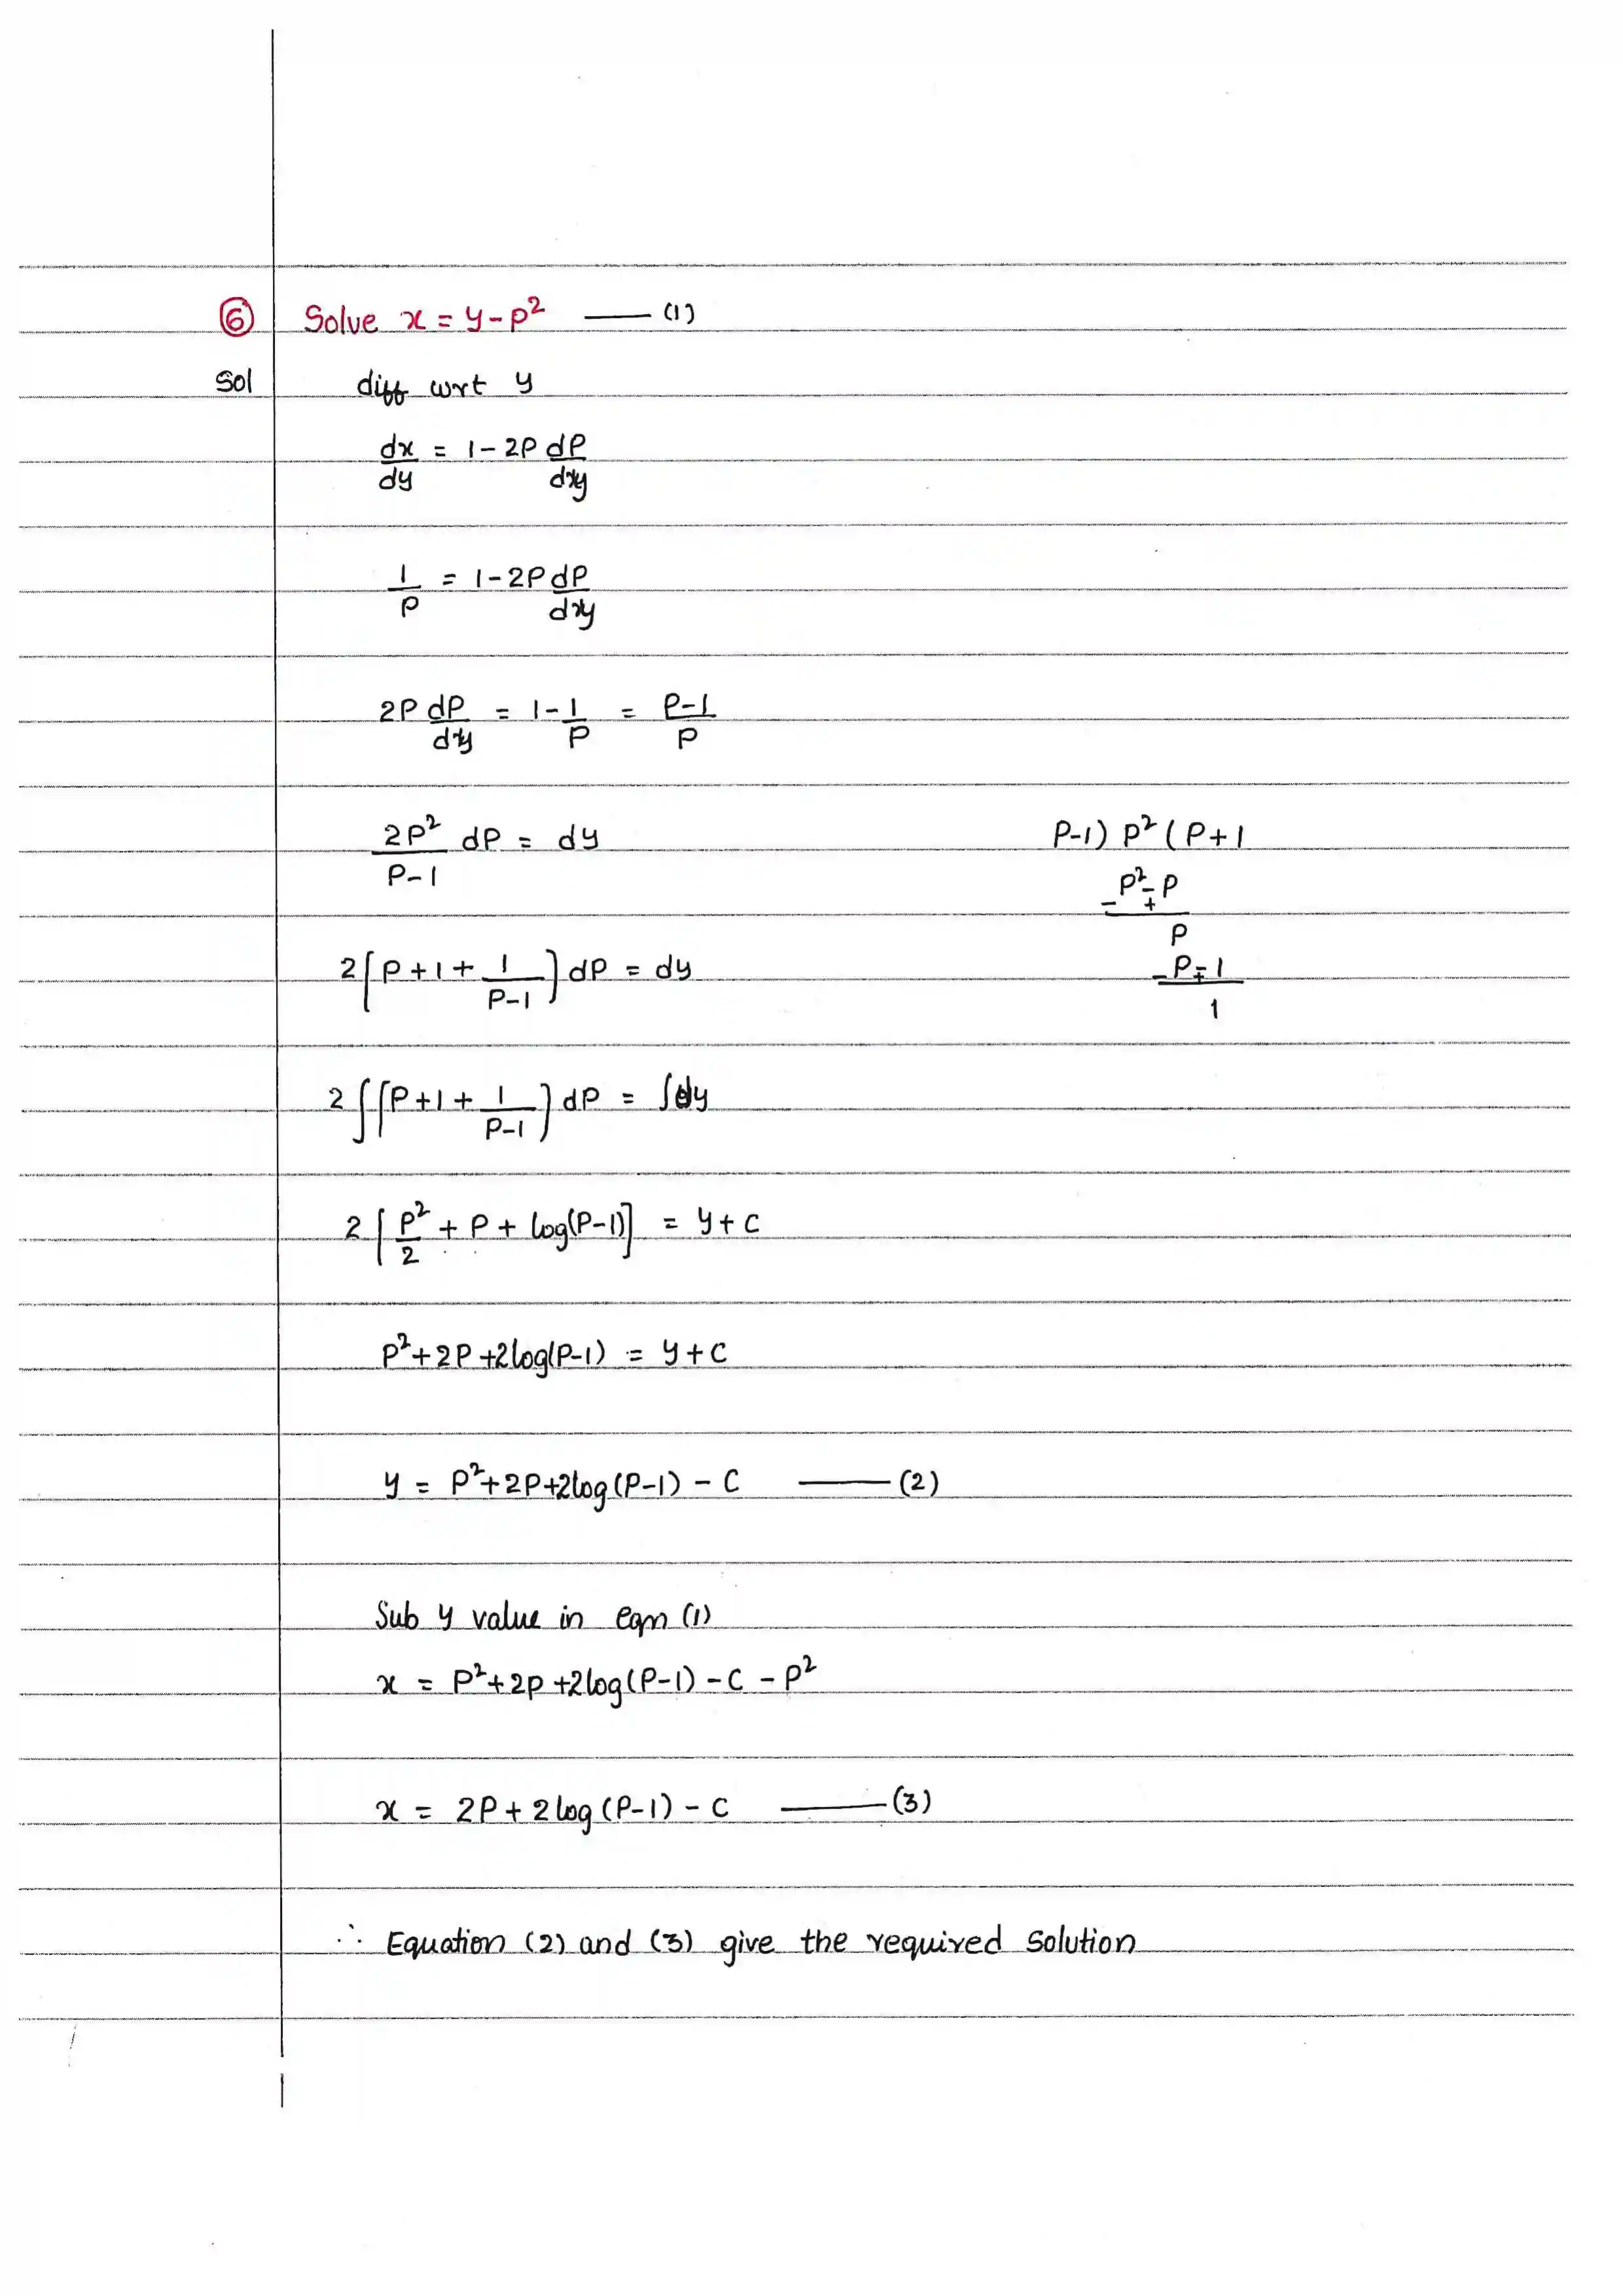 ⑥ Solve x = y - p² —— (1)
Sol diff wrt y
dx/dy = 1 - 2P dP/dy
1/P = 1 - 2P dP/dy
2P dP/dy = 1 - 1/P = P-1/P
2P²/P-1 dP = dy
P-1) P² ( P+1
P² - P
- +
P
P - 1
- +
1
2[P + 1 + 1/P-1] dP = dy
2∫[P + 1 + 1/P-1] dP = ∫dy
2[P²/2 + P + log(P-1)] = y + c
P² + 2P + 2log(P-1) = y + c
y = P² + 2P + 2log(P-1) - C —— (2)
Sub y value in eqn (1)
x = P² + 2P + 2log(P-1) - C - P²
x = 2P + 2log(P-1) - C —— (3)
∴ Equation (2) and (3) give the required Solution